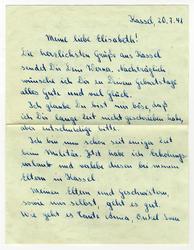 Kassel, 20.7.41
Meine liebe Elisabeth!
Die herzlichsten Grüße aus Kassel
sendet Dir Dein Werner. Nachträglich
wünsche ich Dir zu Deinem Geburtstage
alles gute und viel Glück.
Ich glaube Du bist mir böse, daß
ich Dir lange Zeit nicht geschrieben habe,
aber entschuldige bitte.
Ich bin nun schon seit einiger Zeit
beim Militär. Jetzt habe ich Erholungs-
urlaub und verlebe diesen bei meinen
Eltern in Kassel
Meinen Eltern und Geschwistern,
sowie mir selbst, geht es gut.
Wie geht es Tante Anna, Onkel